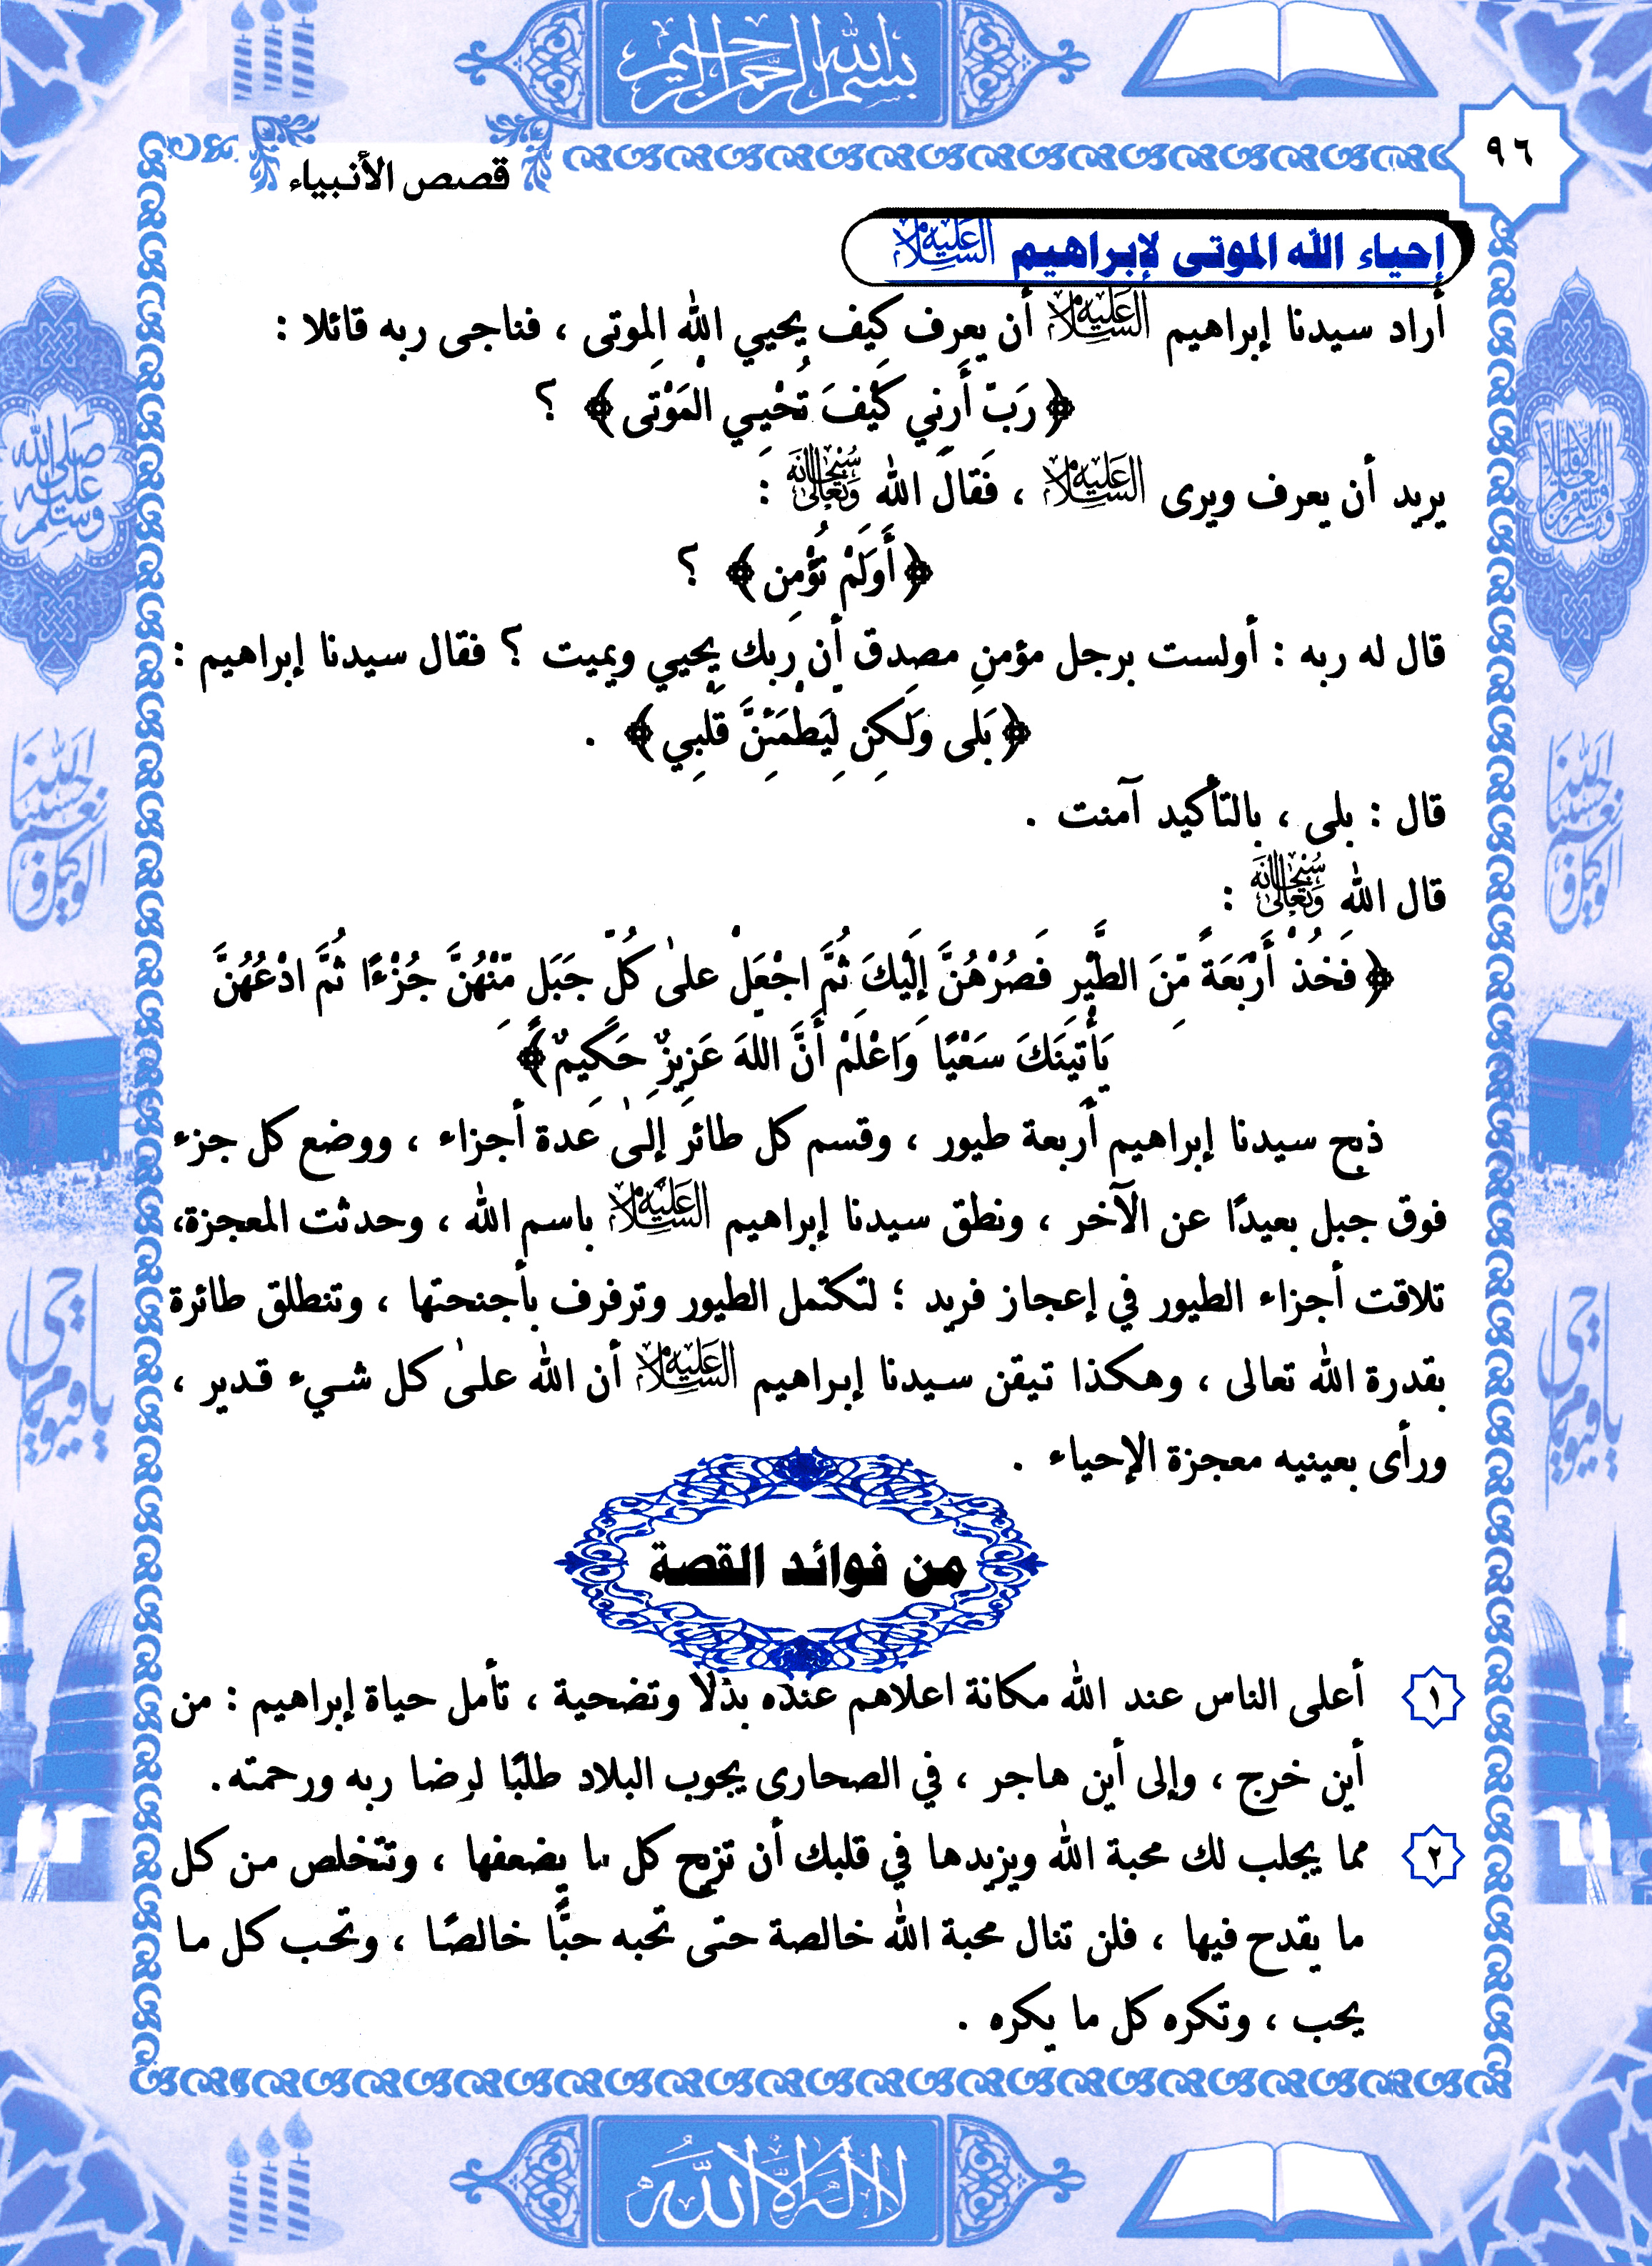 بسم الله الرحمن الرحيم
٩٦
قصص الأنبياء
إحياء الله الموتى لإبراهيم عليه السلام
أراد سيدنا إبراهيم عليه السلام أن يعرف كيف يحيي الله الموتى ، فناجى ربه قائلا :
﴿رَبِّ أَرِنِي كَيْفَ تُحْيِي الْمَوْتَى﴾ ؟
يريد أن يعرف ويرى عليه السلام ، فَقالَ الله سبحانه وتعالى :
﴿أَوَلَمْ تُؤْمِن﴾ ؟
قال له ربه : أولست برجل مؤمن مصدق أن ربك يحيي ويميت ؟ فقال سيدنا إبراهيم :
﴿بَلَى وَلَكِن لِيَطْمَئِنَّ قَلْبِي﴾ .
قال : بلى ، بالتأكيد آمنت .
قال الله سبحانه وتعالى :
﴿فَخُذْ أَرْبَعَةً مِّنَ الطَّيْرِ فَصُرْهُنَّ إِلَيْكَ ثُمَّ اجْعَلْ علىٰ كُلِّ جَبَلٍ مِّنْهُنَّ جُزْءًا ثُمَّ ادْعُهُنَّ
يَأْتِينَكَ سَعْيًا وَاعْلَمْ أَنَّ اللهَ عَزِيزٌ حَكِيمٌ﴾
ذبح سيدنا إبراهيم أربعة طيور ، وقسم كل طائر إلىٰ عدة أجزاء ، ووضع كل جزء
فوق جبل بعيدًا عن الآخر ، ونطق سيدنا إبراهيم عليه السلام باسم الله ، وحدثت المعجزة،
تلاقت أجزاء الطيور في إعجاز فريد ؛ لتكتمل الطيور وترفرف بأجنحتها ، وتنطلق طائرة
بقدرة الله تعالى ، وهكذا تيقن سيدنا إبراهيم عليه السلام أن الله علىٰ كل شيء قدير ،
ورأى بعينيه معجزة الإحياء .
من فوائد القصة
١ أعلى الناس عند الله مكانة اعلاهم عنده بذلًا وتضحية ، تأمل حياة إبراهيم : من
أين خرج ، وإلى أين هاجر ، في الصحارى يجوب البلاد طلبًا لرضا ربه ورحمته.
٢ مما يجلب لك محبة الله ويزيدها في قلبك أن تزيح كل ما يضعفها ، وتتخلص من كل
ما يقدح فيها ، فلن تنال محبة الله خالصة حتى تحبه حبًّا خالصًا ، وتحب كل ما
يحب ، وتكره كل ما يكره .
صلى الله عليه وسلم
حسبنا الله ونعم الوكيل
حسبنا الله ونعم الوكيل
يا حي يا قيوم
يا حي يا قيوم
لا إله إلا الله